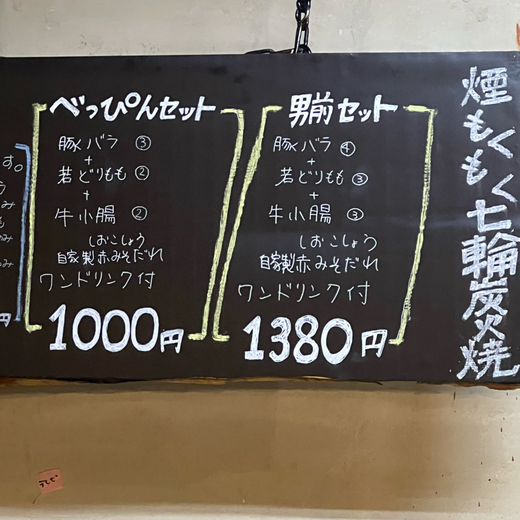 煙もくもく七輪炭火焼
男前セット
豚バラ ④
+
若どりもも ③
+
牛小腸 ③
しおこしょう
自家製赤みそだれ
ワンドリンク付
1380円
べっぴんセット
豚バラ ③
+
若どりもも ②
+
牛小腸 ②
しおこしょう
自家製赤みそだれ
ワンドリンク付
1000円
す。
み
も
み
円